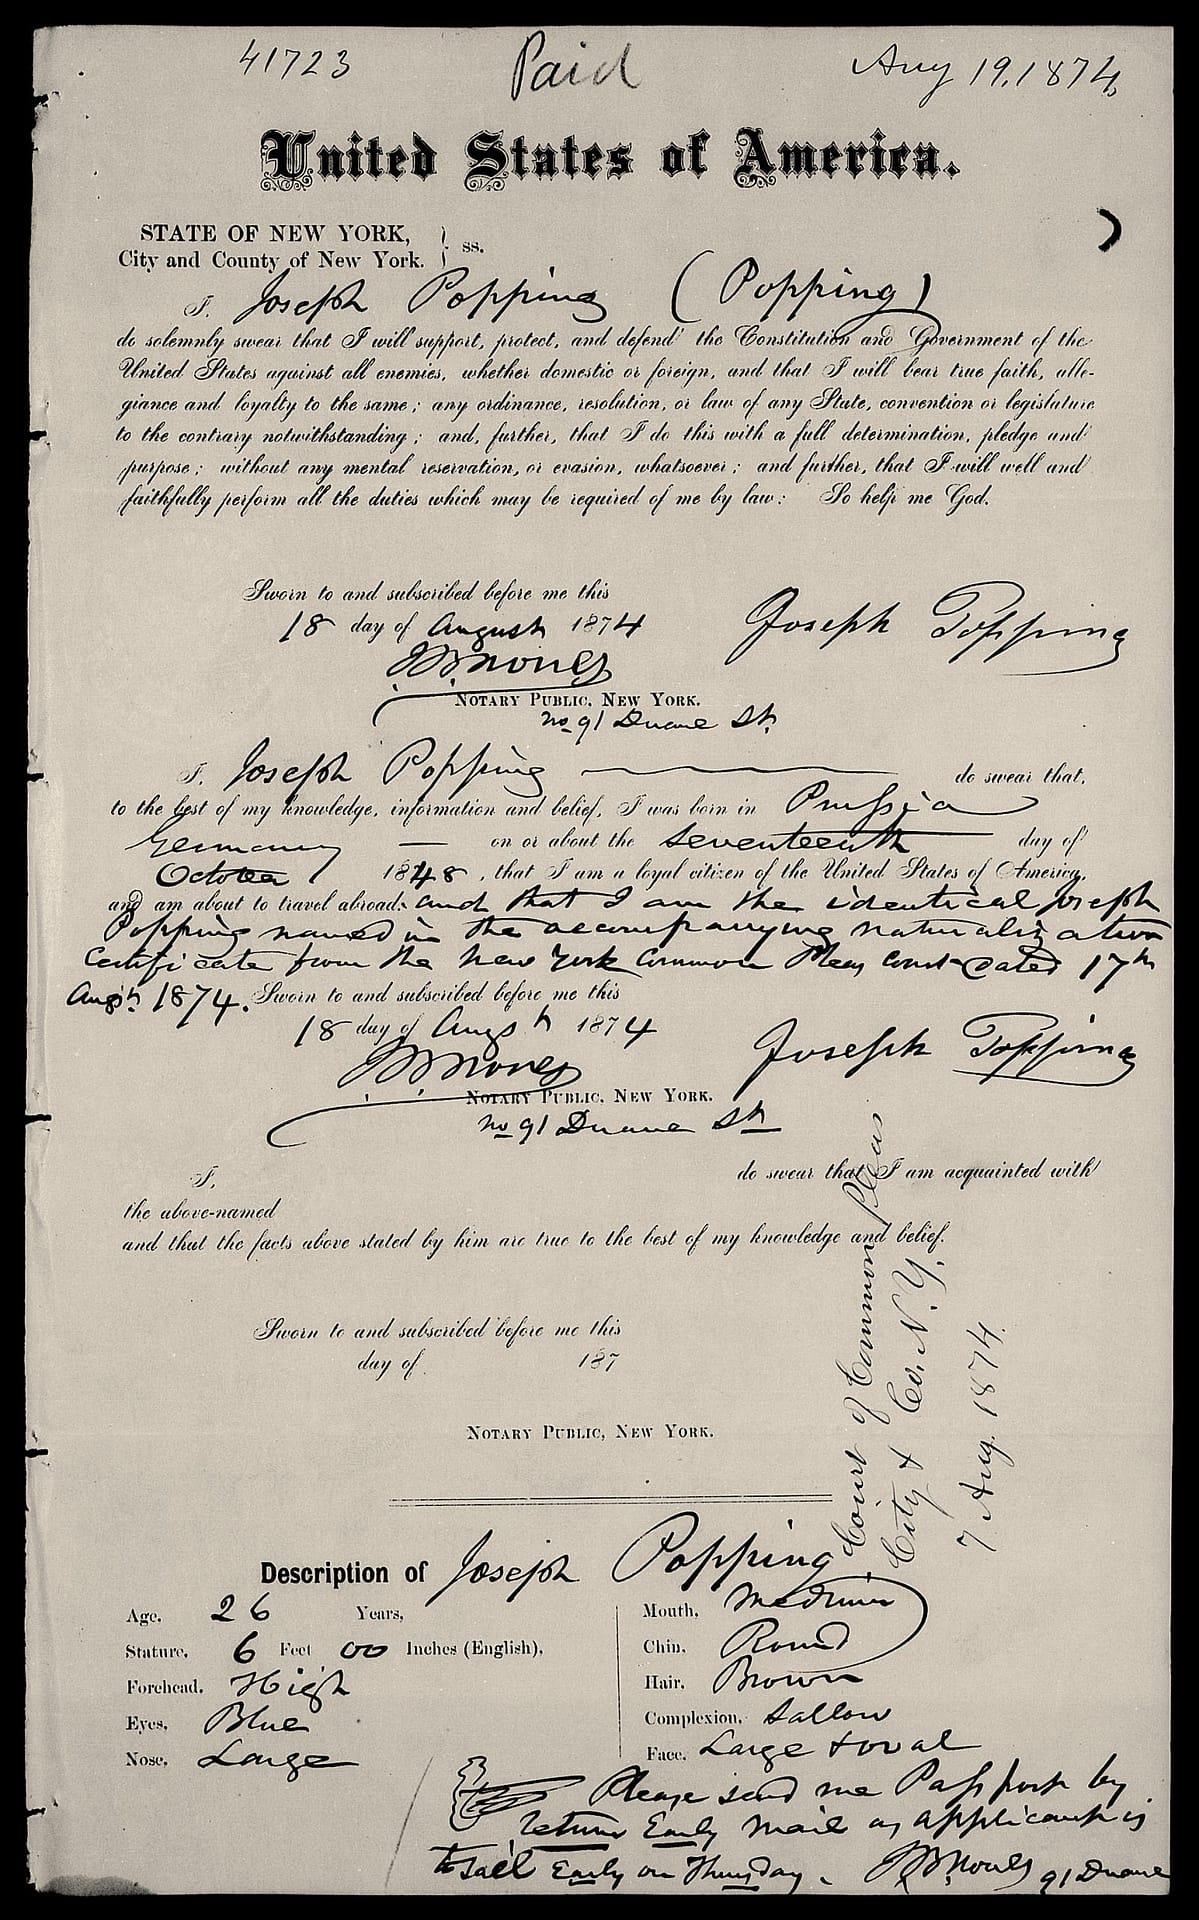 41723 Paid Aug 19, 1874
United States of America.
STATE OF NEW YORK,
City and County of New York. } ss.
I, Joseph Popping (Popping)
do solemnly swear that I will support, protect, and defend the Constitution and Government of the
United States against all enemies, whether domestic or foreign, and that I will bear true faith, alle-
giance and loyalty to the same; any ordinance, resolution, or law of any State, convention or legislature
to the contrary notwithstanding; and, further, that I do this with a full determination, pledge and
purpose; without any mental reservation, or evasion, whatsoever; and further, that I will well and
faithfully perform all the duties which may be required of me by law: So help me God.
Sworn to and subscribed before me this
18 day of August 1874
Joseph Popping
NOTARY PUBLIC, NEW YORK.
No 91 Duane St.
I, Joseph Popping do swear that,
to the best of my knowledge, information and belief, I was born in Prussia
Germany — on or about the seventeenth day of
October 1848, that I am a loyal citizen of the United States of America,
and am about to travel abroad: and that I am the identical Joseph
Popping named in the accompanying naturalization
Certificate from the New York Common Pleas Court dated 17th
Augst 1874. Sworn to and subscribed before me this
18 day of Augst 1874
Joseph Popping
NOTARY PUBLIC, NEW YORK.
No 91 Duane St
I, do swear that I am acquainted with
the above-named
and that the facts above stated by him are true to the best of my knowledge and belief.
Sworn to and subscribed before me this
day of 187
NOTARY PUBLIC, NEW YORK.
Court of Common Pleas
City & Co. N.Y.
7 Aug. 1874.
Description of Joseph Popping
Age, 26 Years,
Stature, 6 Feet 00 Inches (English),
Forehead, High
Eyes, Blue
Nose, Large
Mouth, Medium
Chin, Round
Hair, Brown
Complexion, Sallow
Face, Large & oval
Please send me Passport by
return Early mail as applicant is
to sail Early on Thursday. 91 Duane